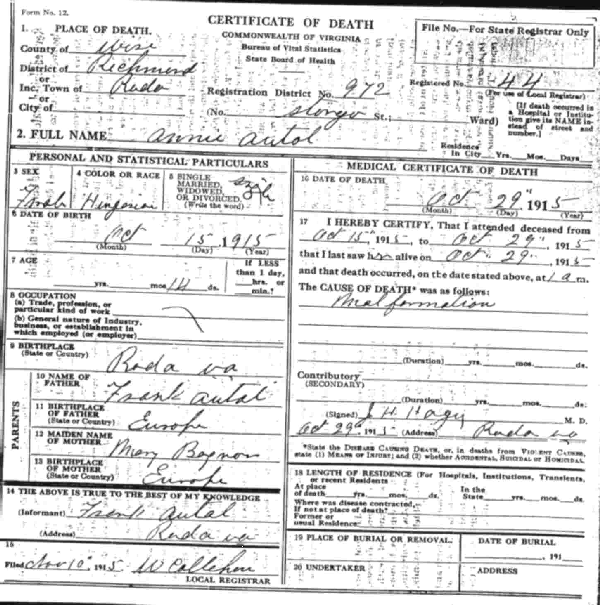 Form No. 12.
CERTIFICATE OF DEATH
COMMONWEALTH OF VIRGINIA
Bureau of Vital Statistics
State Board of Health
File No.—For State Registrar Only
1. PLACE OF DEATH.
County of Wise
District of Richmond
or
Inc. Town of Roda
or
City of
Registration District No. 972
Registered No. 44
(For use of Local Registrar)
(No. Stonga St.; Ward)
[If death occurred in a Hospital or Institution give its NAME instead of street and number.]
2. FULL NAME annie autal
Residence In City Yrs. Mos. Days
PERSONAL AND STATISTICAL PARTICULARS
3 SEX
Female
4 COLOR OR RACE
5 SINGLE MARRIED, WIDOWED OR DIVORCED
(Write the word)
Single
6 DATE OF BIRTH
Oct 15, 1915
(Month) (Day) (Year)
7 AGE
yrs. mos. 14 ds.
If LESS than 1 day, hrs. or min.?
8 OCCUPATION
(a) Trade, profession, or particular kind of work
(b) General nature of Industry, business, or establishment in which employed (or employer)
9 BIRTHPLACE
(State or Country)
Roda va
PARENTS
10 NAME OF FATHER
Frank autal
11 BIRTHPLACE OF FATHER
(State or Country)
Europe
12 MAIDEN NAME OF MOTHER
Mary
13 BIRTHPLACE OF MOTHER
(State or Country)
Europe
14 THE ABOVE IS TRUE TO THE BEST OF MY KNOWLEDGE
(Informant) Frank autal
(Address) Roda va
15
Filed Nov 10, 1915 W Callahan
LOCAL REGISTRAR
MEDICAL CERTIFICATE OF DEATH
16 DATE OF DEATH
Oct 29" 1915
(Month) (Day) (Year)
17 I HEREBY CERTIFY, That I attended deceased from
Oct 15", 1915, to Oct 29", 1915
that I last saw her alive on Oct 29", 1915
and that death occurred, on the date stated above, at 1 a m.
The CAUSE OF DEATH* was as follows:
Malformation
(Duration) yrs. mos. ds.
Contributory
(SECONDARY)
(Duration) yrs. mos. ds.
(Signed) J H Hagy M. D.
Oct 29th 1915 (Address) Roda va
*State the DISEASE CAUSING DEATH, or, in deaths from VIOLENT CAUSES, state (1) MEANS OF INJURY; and (2) whether ACCIDENTAL, SUICIDAL OR HOMICIDAL.
18 LENGTH OF RESIDENCE (For Hospitals, Institutions, Transients, or recent Residents
At place of death yrs. mos. ds.
In the State yrs. mos. ds.
Where was disease contracted, If not at place of death?
Former or usual Residence
19 PLACE OF BURIAL OR REMOVAL.
DATE OF BURIAL
191
20 UNDERTAKER
ADDRESS